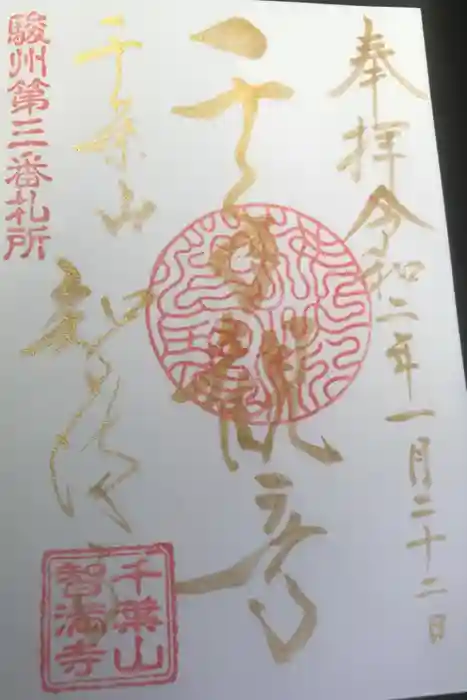 奉拝
令和二年一月二十二日
千手観音
千葉山
智満寺
駿州第三番札所
千葉山
智満寺